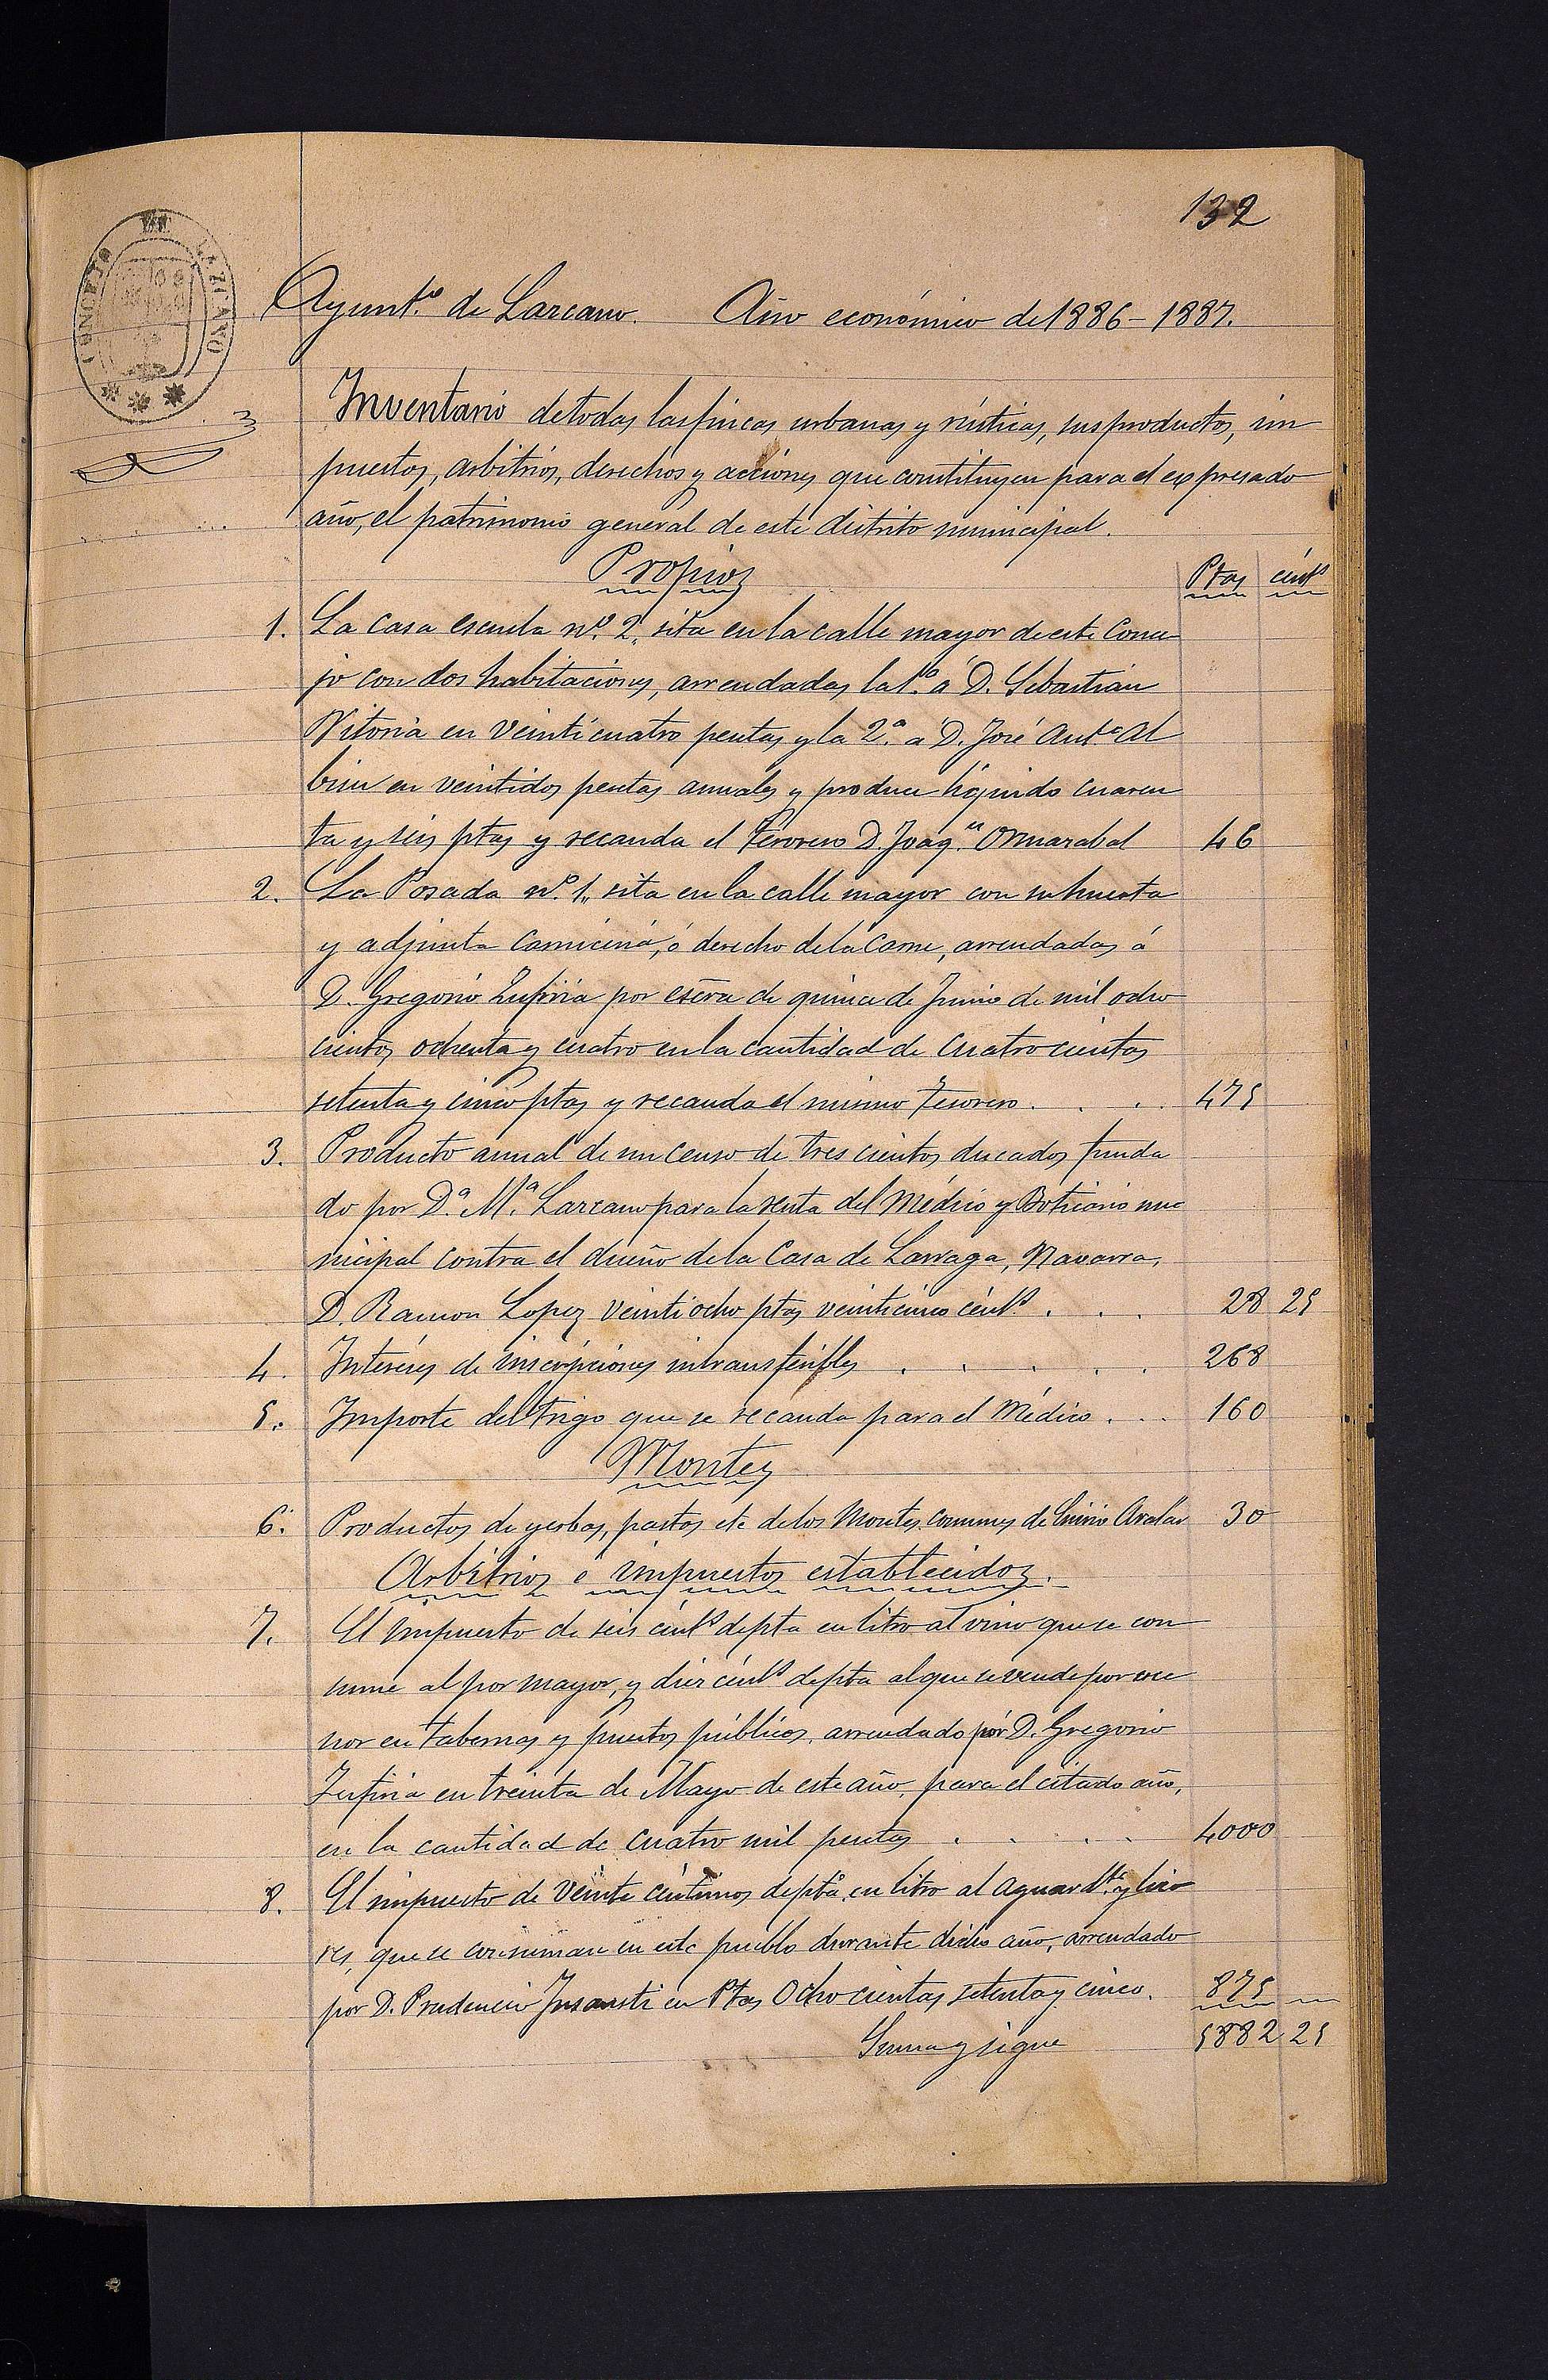 132
CONCEJO DE LAZCANO
Ayunt.º de Lazcano. Año económico de 1886-1887.
Inventario de todas las fincas urbanas y rústicas, sus productos, im
puestos, arbitrios, derechos y acciones que constituyen para el expresado
año, el patrimonio general de este distrito municipal.
Propios Ptas cénts
1. La casa escuela nº. 2, sita en la calle mayor de este Conce
jo con dos habitaciones, arrendadas, la 1.ª á D. Sebastian
Vitoria en veinticuatro pesetas y la 2.ª á D. José Ant.º Al
bisu en veintidos pesetas anuales y produce líquido cuaren
ta y seis ptas y recauda el tesorero D. Joaq.n Ormazabal 46
2. La Posada nº. 1, sita en la calle mayor con su huerta
y adjunta Carniceria, ó derecho de la Carne, arrendadas á
D. Gregorio Zufiria por escra de quince de Junio de mil ocho
cientos ochenta y cuatro en la cantidad de cuatrocientas
setenta y cinco ptas y recauda el mismo tesorero. . . . 475
3. Producto anual de un censo de trescientos ducados funda
do por D.ª M.ª Lazcano para la renta del Médico y Boticario mu
nicipal contra el dueño de la Casa de Larraga, Navarra,
D. Ramon Lopez veintiocho ptas veinticinco cénts . . . 28 25
4. Intereses de inscripciones intransferibles . . . . . 268
5. Importe del trigo que se recauda para el Médico . . . 160
Montes
6. Productos de yerbas, pastos etc de los Montes comunes de Enirio Aralar 30
Arbitrios é impuestos establecidos.
7. El impuesto de seis cénts de pta en litro al vino que se con
sume al por mayor, y diez cénts de pta al que se vende por me
nor en tabernas y puestos públicos, arrendado por D. Gregorio
Zufiria en treinta de Mayo de este año, para el citado año,
en la cantidad de cuatro mil pesetas . . . . 4000
8. El impuesto de veinte céntimos de pta, en litro al aguardte. y lico
res, que se consuman en este pueblo durante dicho año, arrendado
por D. Prudencio Insausti en Ptas Ochocientas setenta y cinco. 875
Suma y sigue 5882 25